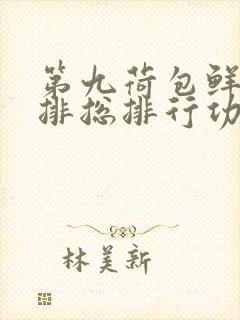 第九荷包鲜
排总排行功
林美新